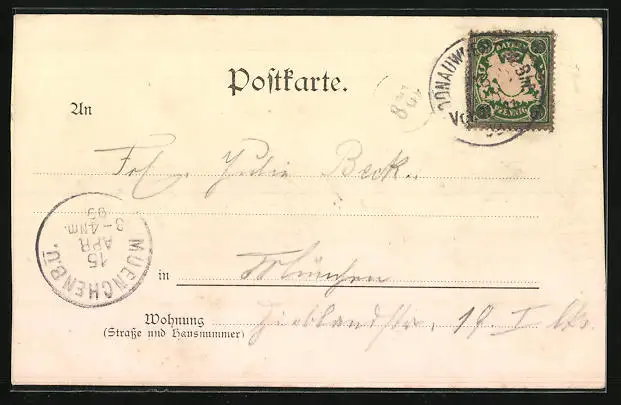 BAYERN
PFENNIG
DONAUWÖ
Postkarte.
An
Frl. Julie Beck.
MUENCHEN B.U.
15
APR
3-4 Nm.
99
in München
Wohnung Hieblandstr. 19. I lks.
(Straße und Hausnummer)